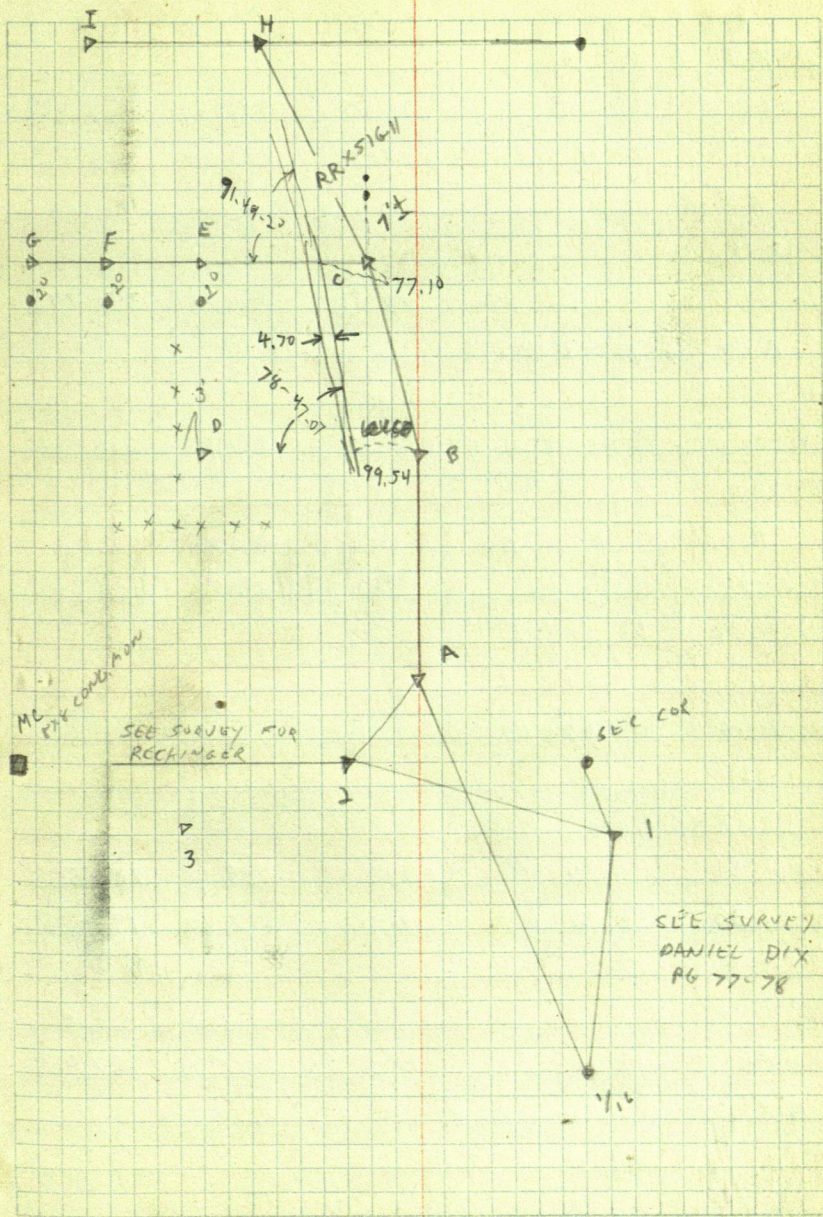 I
H
RR X SIGN
91-49-20
1'±
G
F
E
20
20
20
C
77.10
4.70
78-47.07
3'
D
B
99.54
A
MC
CONC. MON
SEE SURVEY FOR
RECHINGER
SEC COR
2
1
3
SEE SURVEY
DANIEL DIX
PG 77-78
1/16